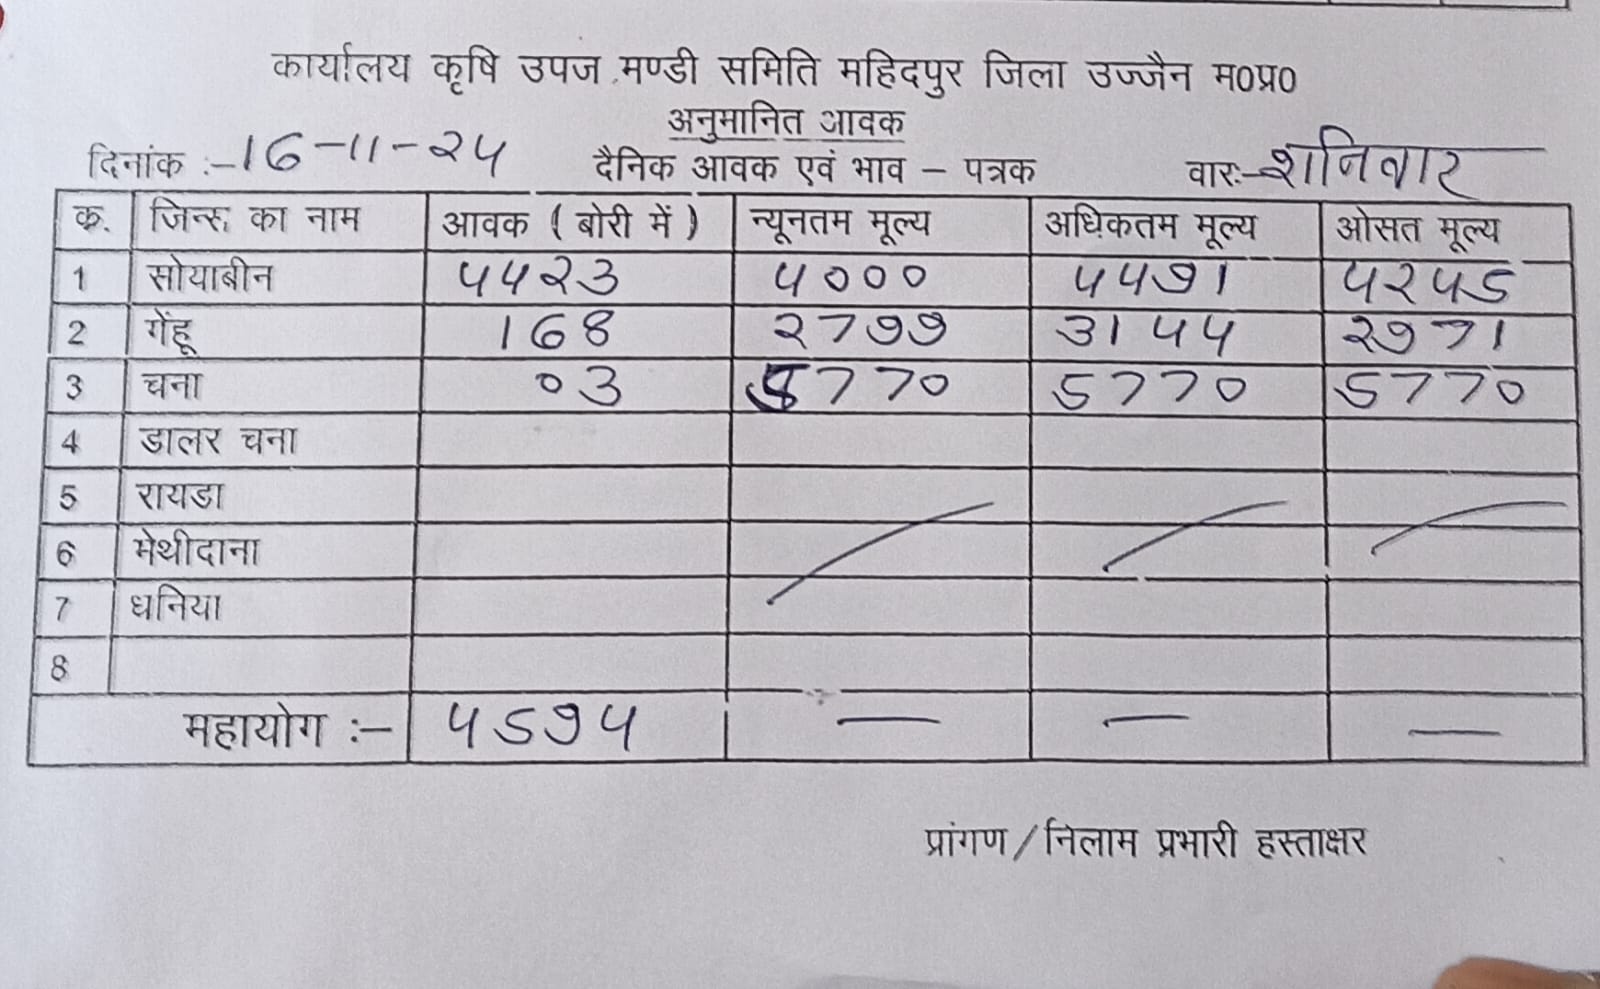 कार्यालय कृषि उपज मण्डी समिति महिदपुर जिला उज्जैन म0प्र0
अनुमानित आवक
दिनांक :- 16-11-24 दैनिक आवक एवं भाव – पत्रक वारः- शनिवार
क्र. जिन्स का नाम आवक ( बोरी में ) न्यूनतम मूल्य अधिकतम मूल्य ओसत मूल्य
1 सोयाबीन 4423 4000 4491 4245
2 गेंहू 168 2799 3144 2971
3 चना 03 5770 5770 5770
4 डालर चना
5 रायडा
6 मेथीदाना
7 धनिया
8
महायोग :- 4594 — — —
प्रांगण / निलाम प्रभारी हस्ताक्षर